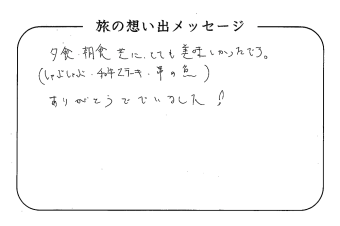 旅の想い出メッセージ
夕食・朝食 共に、とても美味しかったです。
(しゃぶしゃぶ・牛ステーキ・の魚)
ありがとうございました!